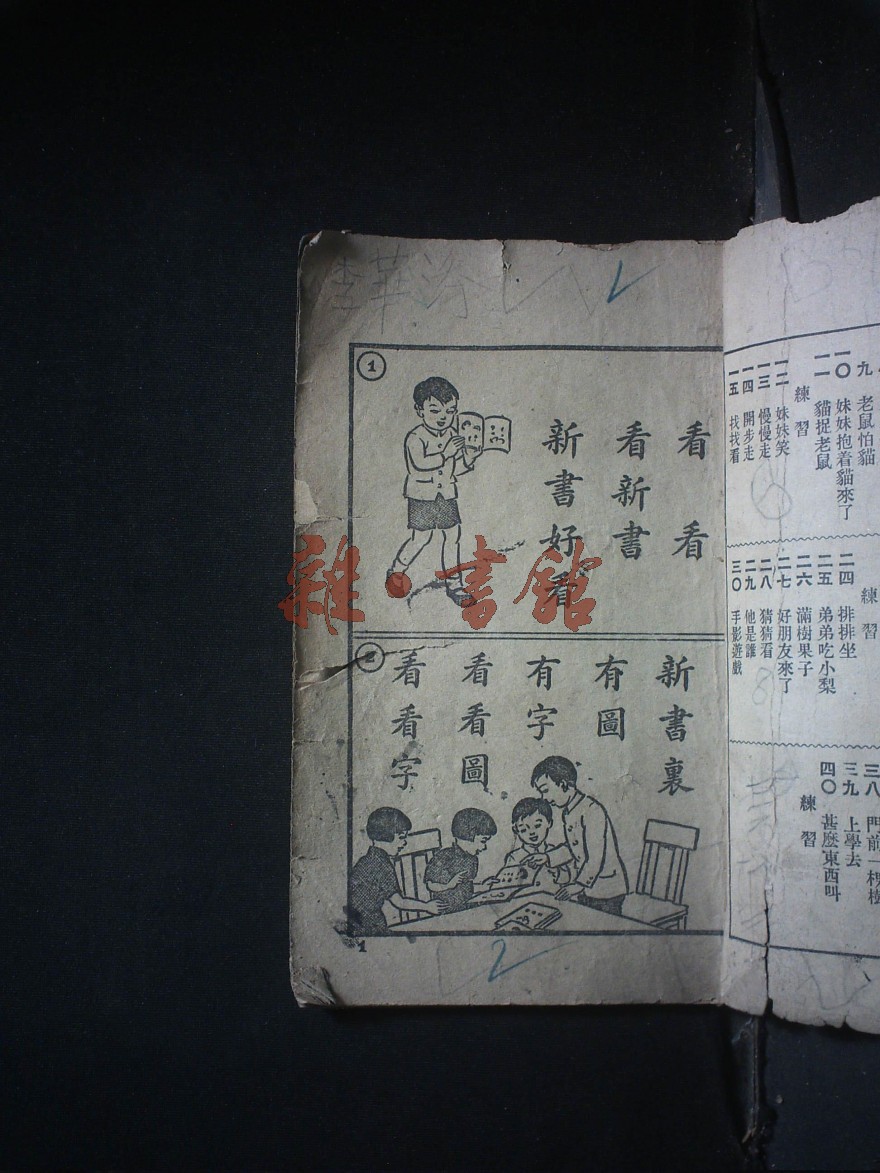 九 老鼠怕貓
一〇 妹妹抱着貓來了
一一 貓捉老鼠
練習
一二 妹妹笑
一三 慢慢走
一四 開步走
一五 找找看
練習
二四 排排坐
二五 弟弟吃小梨
二六 滿樹果子
二七 好朋友來了
二八 猜猜看
二九 他是誰
三〇 手影遊戲
三八 門前一棵樹
三九 上學去
四〇 甚麼東西叫
練習
李華
1
看看
看新書
新書好看
2
新書裏
有圖
有字
看看圖
看看字
1
2
雜·書館